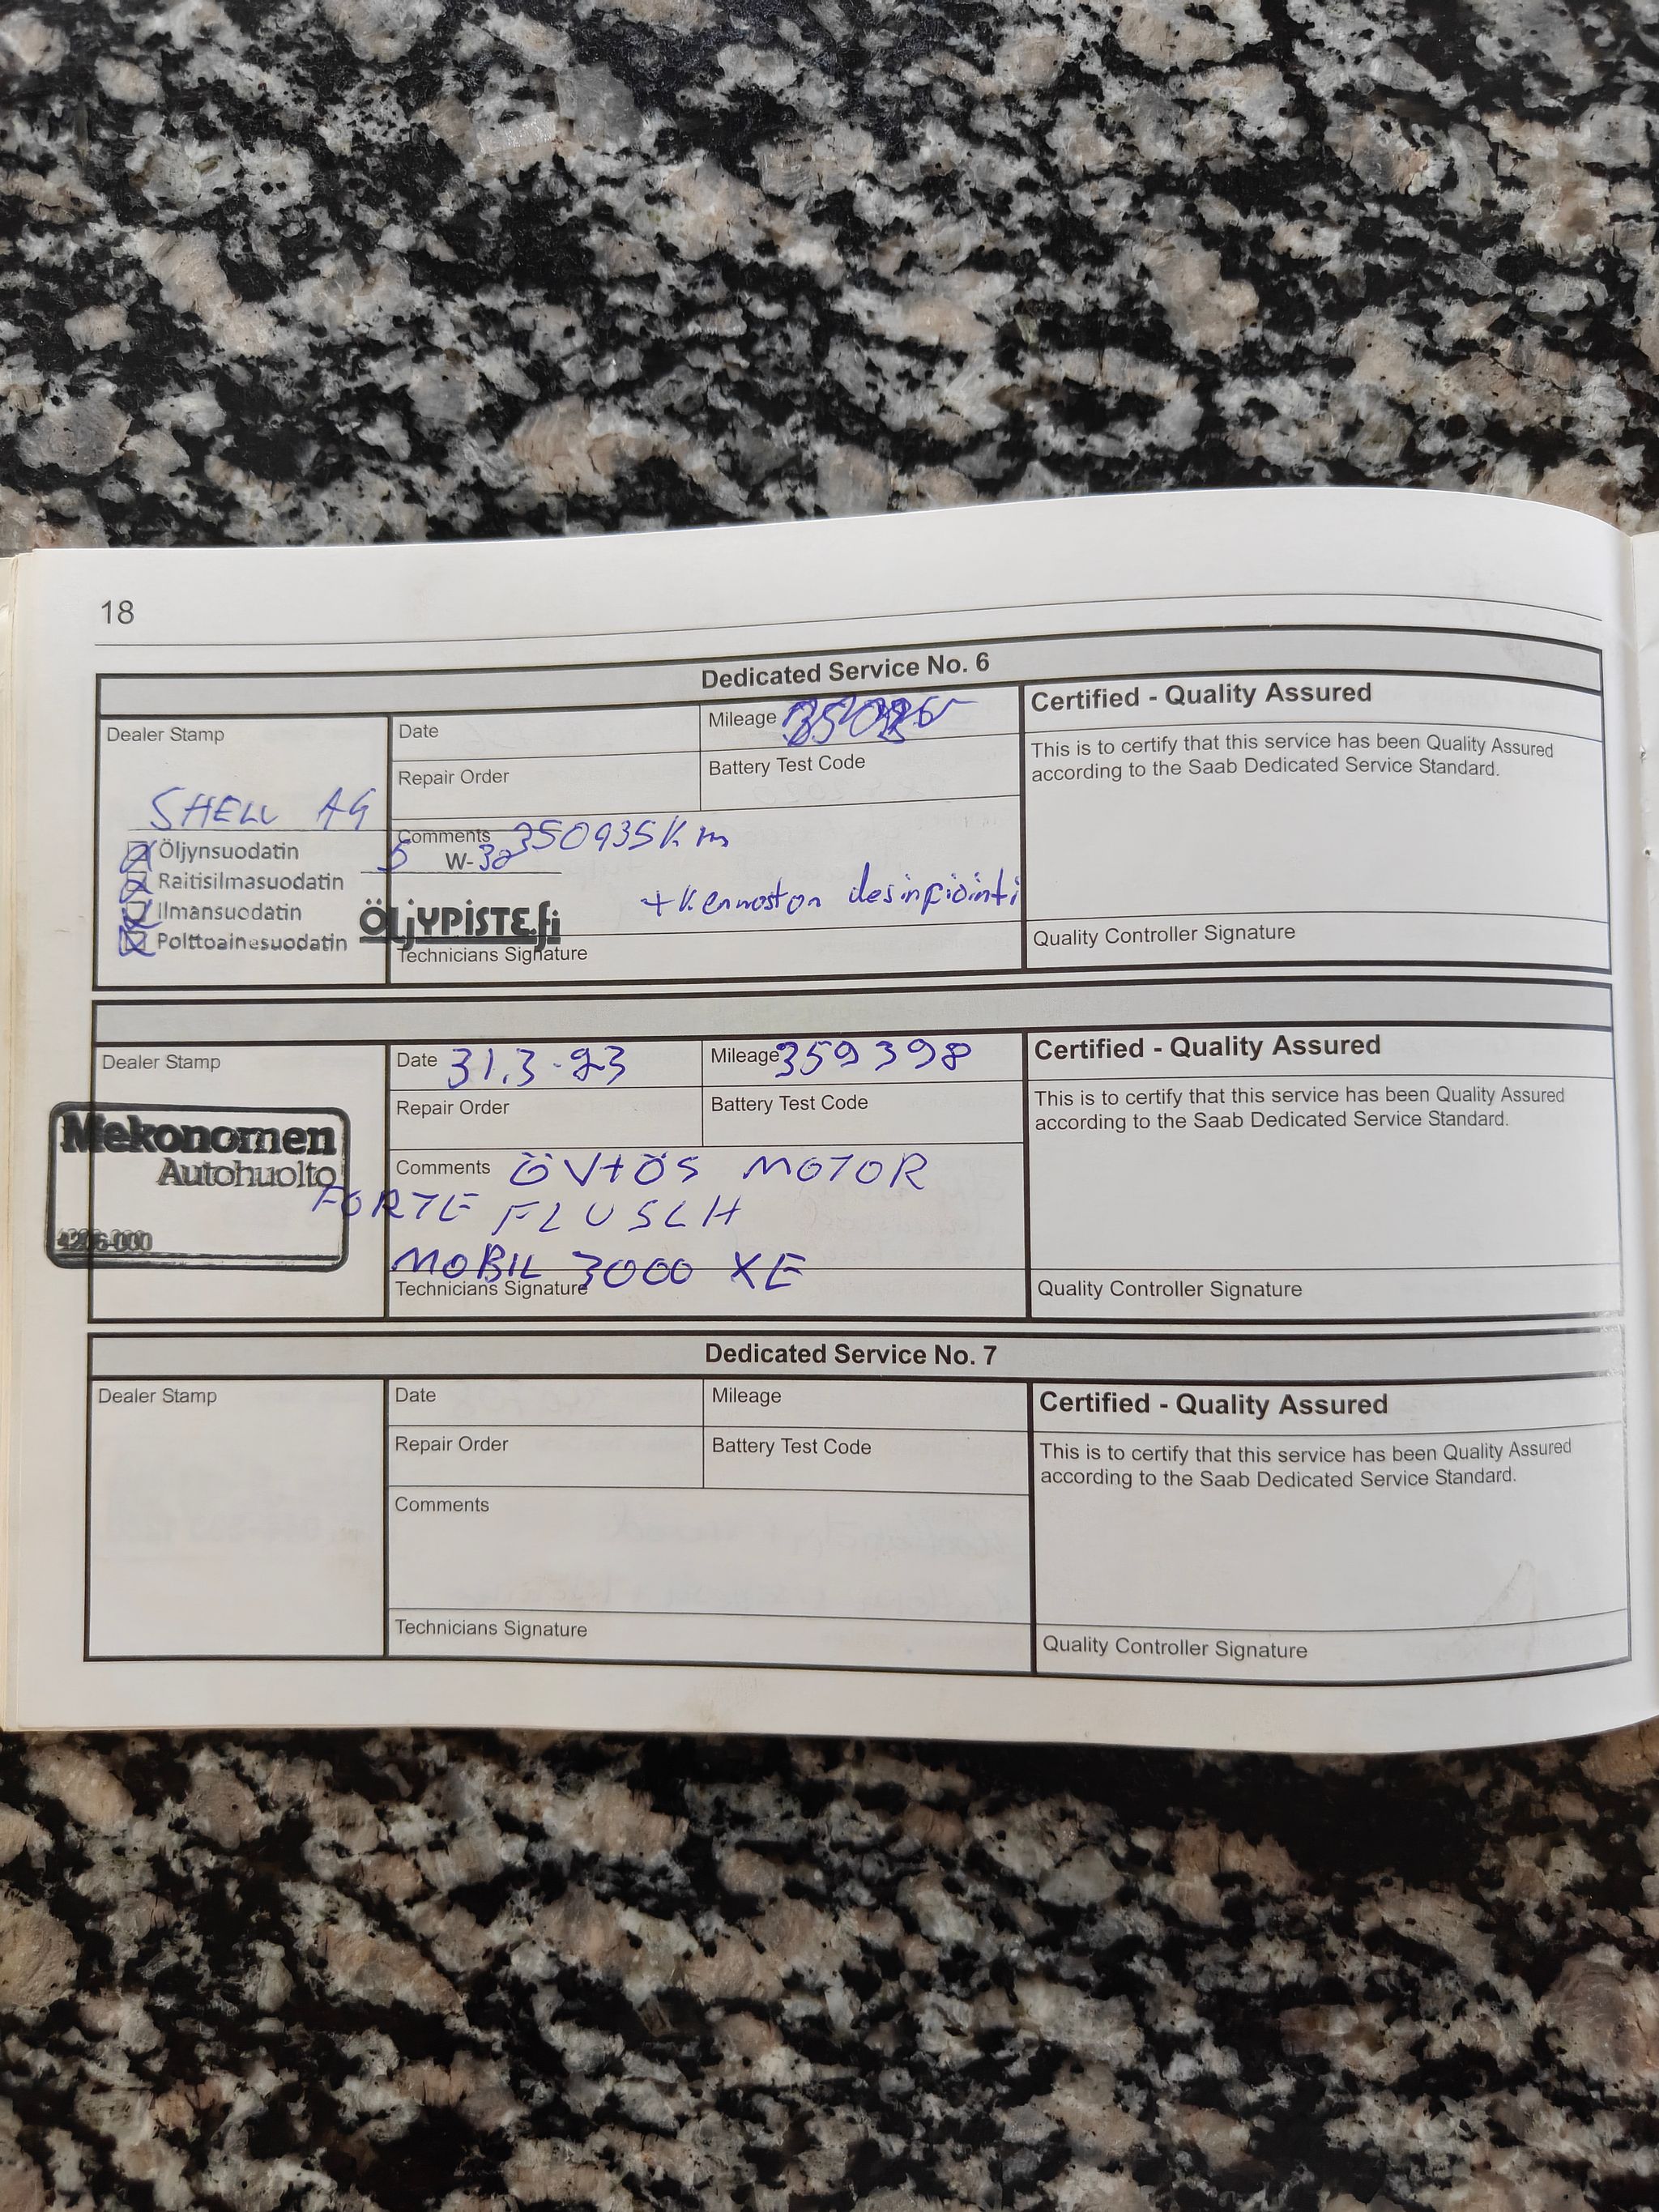 18
Dedicated Service No. 6
Dealer Stamp
Date
Mileage
Certified - Quality Assured
Repair Order
Battery Test Code
This is to certify that this service has been Quality Assured
according to the Saab Dedicated Service Standard.
SHELL AG
Comments 350935 Km
Öljynsuodatin
5 W-30
Raitisilmasuodatin
+ Kennoston desinfiointi
Ilmansuodatin
ÖljYPiSTE.fi
Polttoainesuodatin
Technicians Signature
Quality Controller Signature
Dealer Stamp
Date 31.3.23
Mileage 359398
Certified - Quality Assured
Repair Order
Battery Test Code
This is to certify that this service has been Quality Assured
according to the Saab Dedicated Service Standard.
Mekonomen
Autohuolto
Comments ÖV+ÖS MOTOR
FORTE FLUSCH
MOBIL 3000 XE
Technicians Signature
Quality Controller Signature
Dedicated Service No. 7
Dealer Stamp
Date
Mileage
Certified - Quality Assured
Repair Order
Battery Test Code
This is to certify that this service has been Quality Assured
according to the Saab Dedicated Service Standard.
Comments
Technicians Signature
Quality Controller Signature